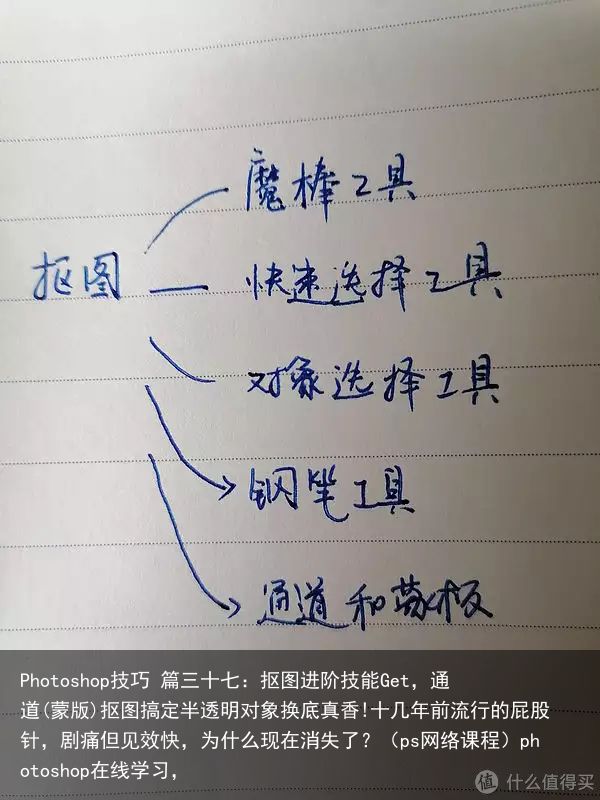 魔棒工具
抠图
快速选择工具
对象选择工具
钢笔工具
通道和蒙板
Photoshop技巧 篇三十七：抠图进阶技能Get，通
道(蒙版)抠图搞定半透明对象换底真香!十几年前流行的屁股
针，剧痛但见效快，为什么现在消失了？（ps网络课程）ph
otoshop在线学习，
值 什么值得买